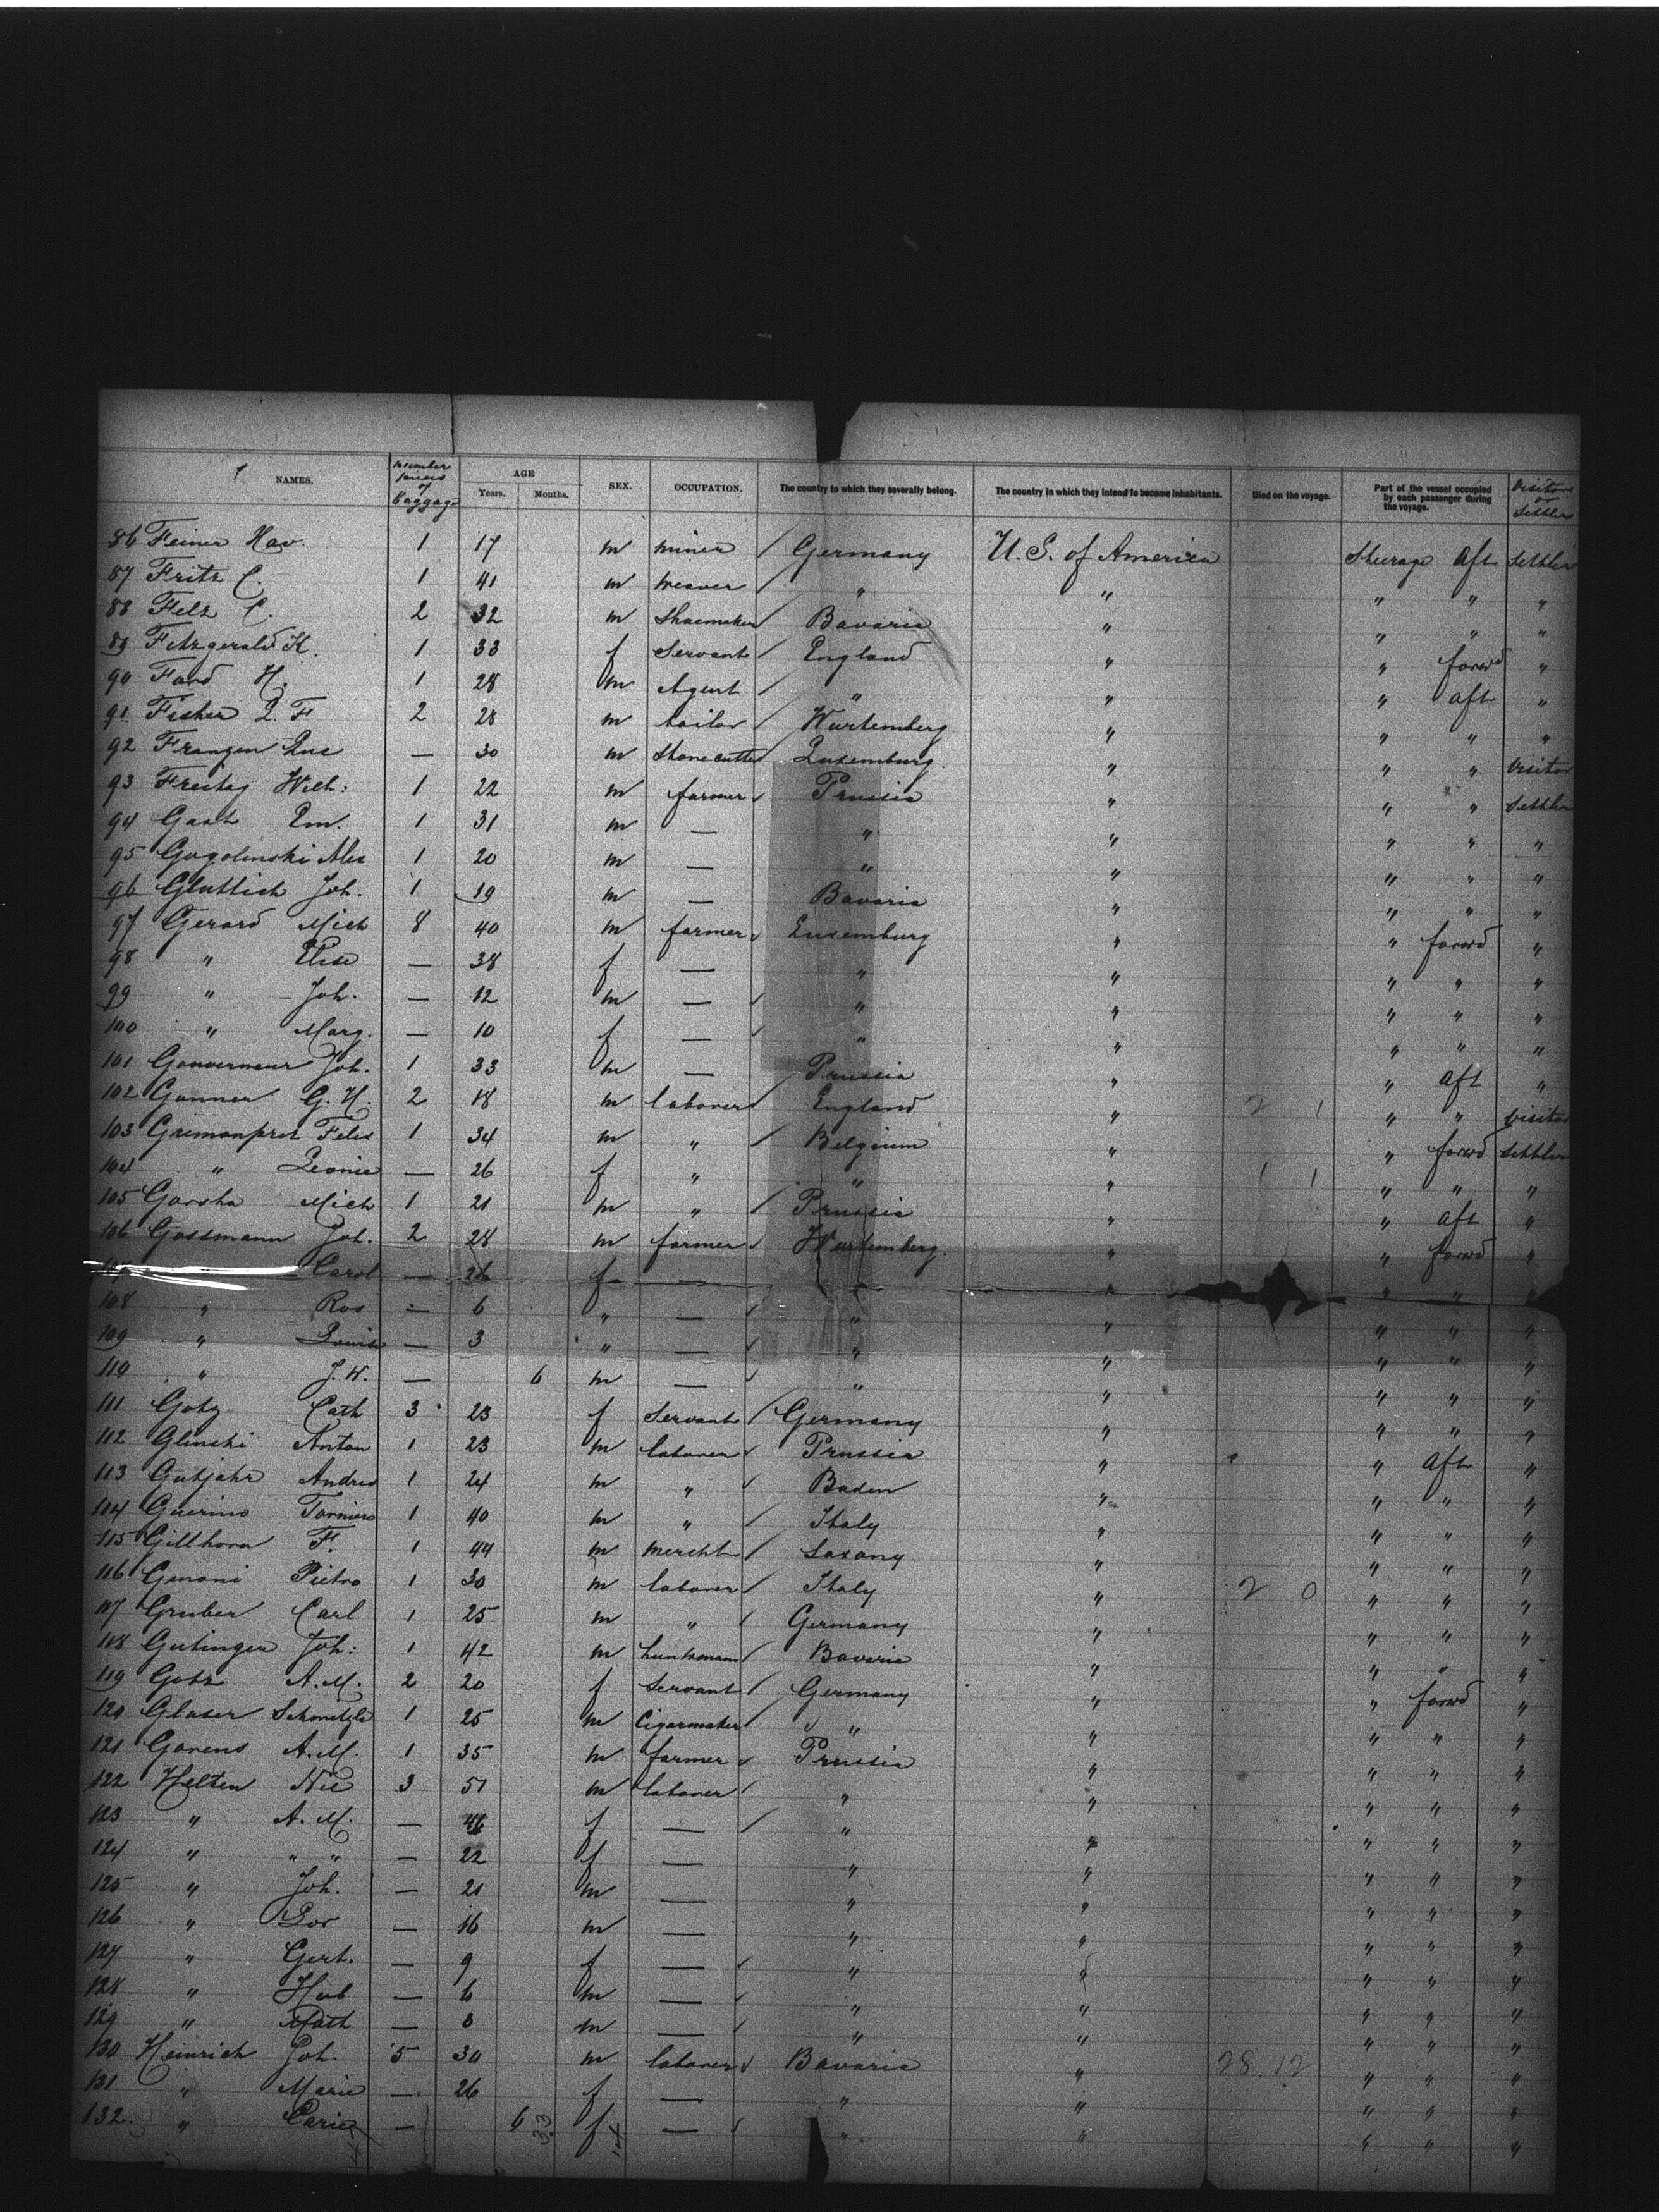 NAMES. Number pieces of Baggage AGE Years. Months. SEX. OCCUPATION. The country to which they severally belong. The country in which they intend to become inhabitants. Died on the voyage. Part of the vessel occupied by each passenger during the voyage. Visitor or Settler
86 Feiner Xav. 1 17 m miner / Germany U.S. of America Steerage Aft Settler
87 Fritz C. 1 41 m weaver / " " " " "
88 Felz C. 2 32 m Shoemaker / Bavaria " " " "
89 Fitzgerald K. 1 33 f Servant / England " " forwd "
90 Ford H. 1 28 m Agent / " " " aft "
91 Fisher L. F 2 28 m tailor / Wurtemberg " " " "
92 Franzen Luc — 30 m Stonecutter Luxemburg. " " " visitor
93 Freitag Wilh: 1 22 m farmer Prussia " " " Settler
94 Gaat Em. 1 31 m — " " " " "
95 Gogolinski Alex 1 20 m — " " " " "
96 Gluttich Joh. 1 19 m — Bavaria " " " "
97 Gerard Mich 8 40 m farmer Luxemburg " " forwd "
98 " Elise — 38 f — " " " " "
99 " Joh. — 12 m — " " " " "
100 " Marg. — 10 f — " " " " "
101 Gouverneur Joh. 1 33 m — Prussia " " aft "
102 Gunner G. H. 2 18 m laborer England " 2 1 " " visitor
103 Grimonpret Felix 1 34 m " / Belgium " " forwd Settler
104 " Leonie — 26 f " " " 1 1 " " "
105 Gorska Mich 1 21 m " / Prussia " " aft "
106 Gossmann Joh. 2 28 m farmer Wurtemberg. " " forwd "
Carol — 26 f — " " " " "
108 " Ros — 6 " — " " " " "
109 " Louise — 3 " — " " " " "
110 " J. W. — 6 m — " " " " "
111 Gotz Cath 3 23 f Servant / Germany " " " "
112 Glinski Anton 1 23 m laborer Prussia " " aft "
113 Gutjahr Andres 1 24 m " Baden " " " "
114 Guerino Torniero 1 40 m " / Italy " " " "
115 Gillhorn F. 1 44 m mercht / Saxony " " " "
116 Genoni Pietro 1 30 m laborer / Italy " 2 0 " " "
117 Gruber Carl 1 25 m " / Germany " " " "
118 Gutinger Joh: 1 42 m huntsman / Bavaria " " " "
119 Gotz A. M. 2 20 f Servant / Germany " " forwd "
120 Glaser 1 25 m Cigarmaker / " " " " "
121 Gorens A. M. 1 35 m farmer Prussia " " " "
122 Helten Nic 3 51 m laborer / " " " " "
123 " A. M. — 46 f — / " " " " "
124 " " " — 22 f — " " " " "
125 " Joh. — 21 m — " " " " "
126 " — 16 m — " " " " "
127 " Gert. — 9 f — " " " " "
128 " Hub — 6 m — " " " " "
129 " Math — 3 m — " " " " "
130 Heinrich Joh. 5 30 m laborer Bavaria " 28.12 " " "
131 " Marie — 26 f — " " " " "
132. " — 6 f — " " " " "
33